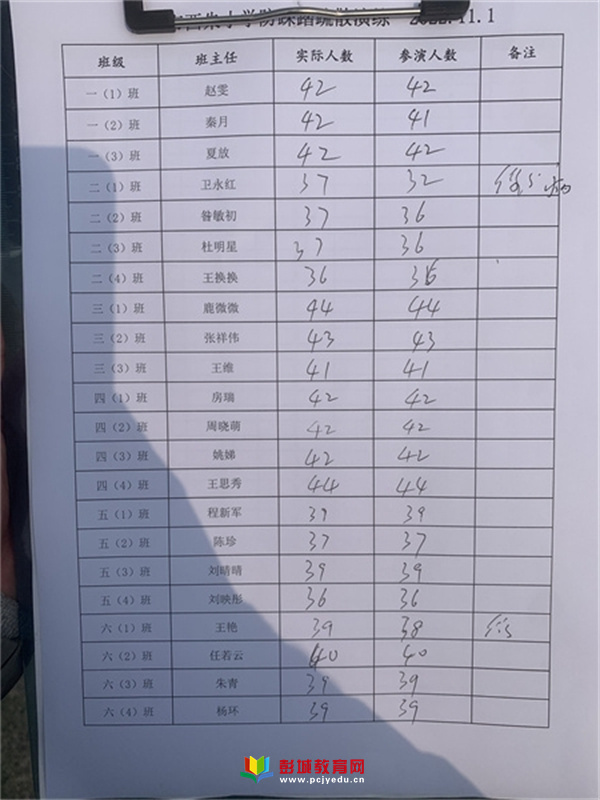 西朱小学防踩踏疏散演练 2022.11.1
班级 班主任 实际人数 参演人数 备注
一（1）班 赵雯 42 42
一（2）班 秦月 42 41
一（3）班 夏放 42 42
二（1）班 卫永红 37 32
二（2）班 昝敏初 37 36
二（3）班 杜明星 37 36
二（4）班 王换换 36 36
三（1）班 鹿微微 44 44
三（2）班 张祥伟 43 43
三（3）班 王维 41 41
四（1）班 房瑞 42 42
四（2）班 周晓萌 42 42
四（3）班 姚娣 42 42
四（4）班 王思秀 44 44
五（1）班 程新军 39 39
五（2）班 陈珍 37 37
五（3）班 刘晴晴 39 39
五（4）班 刘映彤 36 36
六（1）班 王艳 39 38
六（2）班 任若云 40 40
六（3）班 朱青 39 39
六（4）班 杨环 39 39
彭城教育网
www.pcjyedu.cn